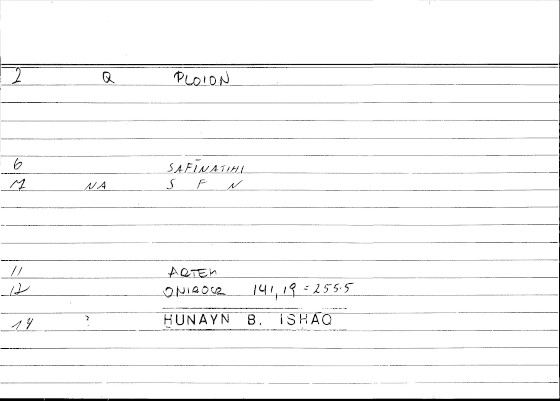 2 Q PLOION
6 SAFĪNATIHI
M NA S F N
11 ARTEM
12 ONIROCR 141,19 = 255.5
14 ? HUNAYN B. ISHAQ